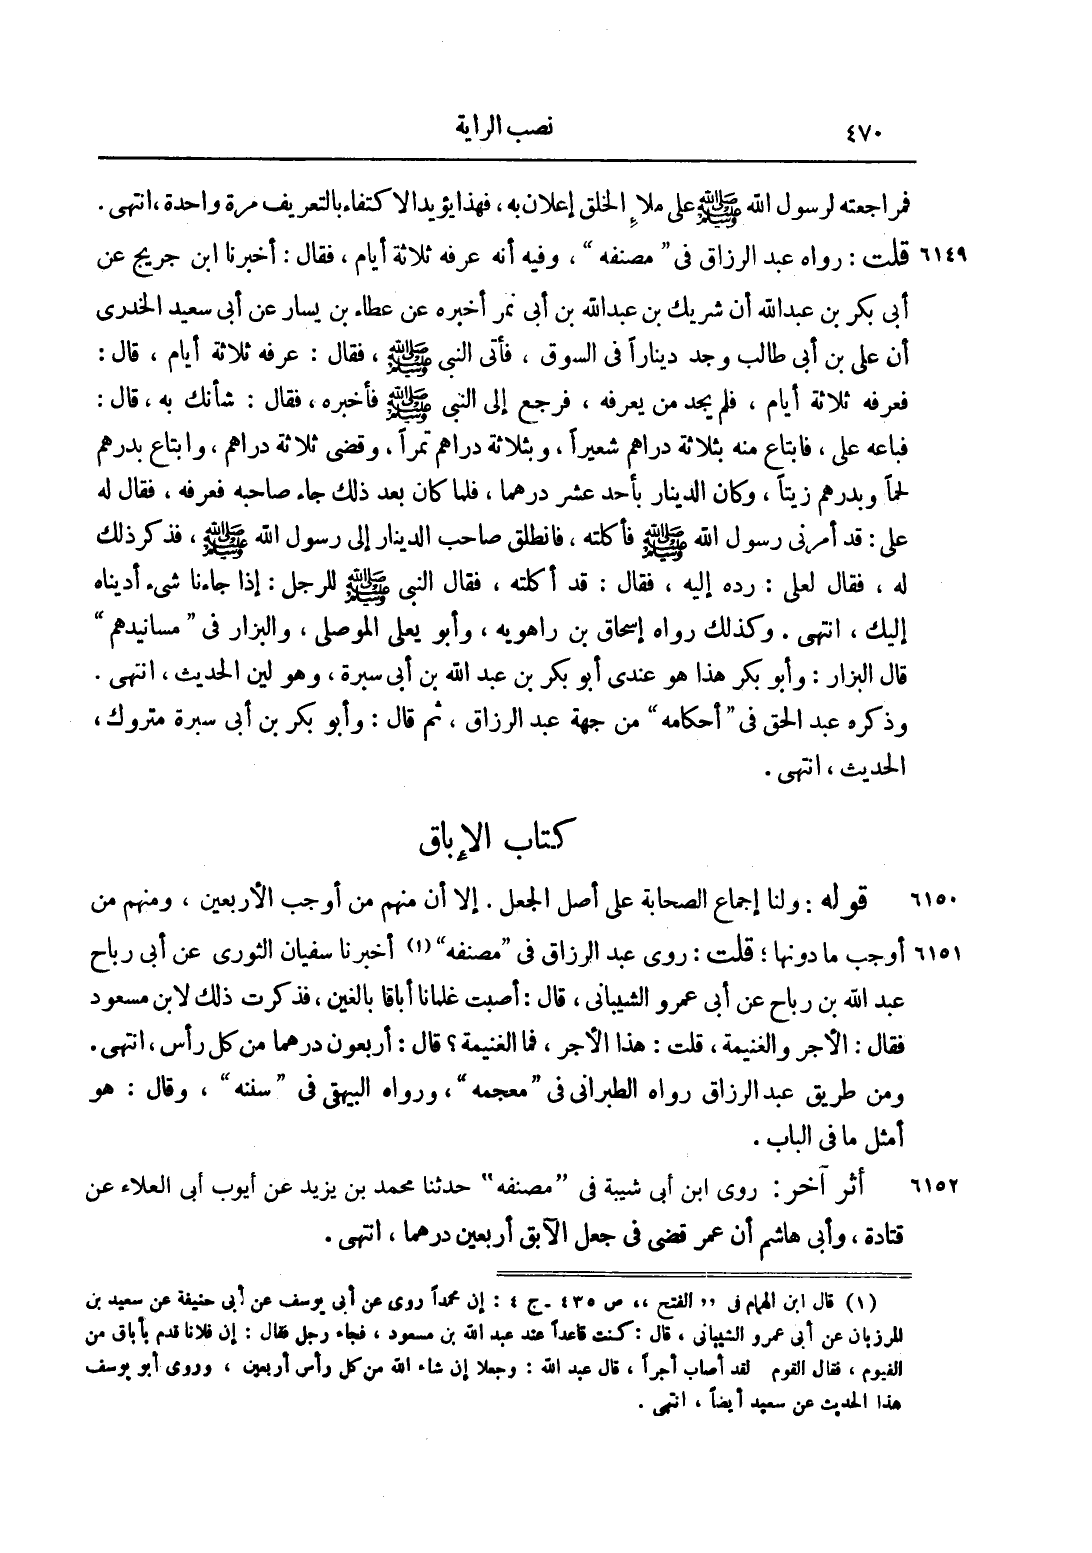 ٤٧٠ نصب الراية
فمراجعته لرسول الله ﷺ على ملاءٍ الخلق إعلان به، فهذا يؤيد الاكتفاء بالتعريف مرة واحدة، انتهى.
٦١٤٩ قلت: رواه عبد الرزاق فى "مصنفه"، وفيه أنه عرفه ثلاثة أيام، فقال: أخبرنا ابن جريج عن
أبى بكر بن عبدالله أن شريك بن عبدالله بن أبى نمر أخبره عن عطاء بن يسار عن أبى سعيد الخدرى
أن على بن أبى طالب وجد ديناراً فى السوق، فأتى النبى ﷺ، فقال: عرفه ثلاثة أيام، قال:
فعرفه ثلاثة أيام، فلم يجد من يعرفه، فرجع إلى النبى ﷺ فأخبره، فقال: شأنك به، قال:
فباعه على، فابتاع منه بثلاثة دراهم شعيراً، وبثلاثة دراهم تمراً، وقضى ثلاثة دراهم، وابتاع بدرهم
لحماً وبدرهم زيتاً، وكان الدينار بأحد عشر درهما، فلما كان بعد ذلك جاء صاحبه فعرفه، فقال له
على: قد أمرنى رسول الله ﷺ فأكلته، فانطلق صاحب الدينار إلى رسول الله ﷺ، فذكر ذلك
له، فقال لعلى: رده إليه، فقال: قد أكلته، فقال النبى ﷺ للرجل: إذا جاءنا شىء أديناه
إليك، انتهى. وكذلك رواه إسحاق بن راهويه، وأبو يعلى الموصلى، والبزار فى "مسانيدهم"
قال البزار: وأبو بكر هذا هو عندى أبو بكر بن عبد الله بن أبى سبرة، وهو لين الحديث، انتهى.
وذكره عبد الحق فى "أحكامه" من جهة عبد الرزاق، ثم قال: وأبو بكر بن أبى سبرة متروك،
الحديث، انتهى.
كتاب الإباق
٦١٥٠ قوله: ولنا إجماع الصحابة على أصل الجعل. إلا أن منهم من أوجب الأربعين، ومنهم من
٦١٥١ أوجب ما دونها؛ قلت: روى عبد الرزاق فى "مصنفه" (١) أخبرنا سفيان الثورى عن أبى رباح
عبد الله بن رباح عن أبى عمرو الشيبانى، قال: أصبت غلمانا أباقا بالغين، فذكرت ذلك لابن مسعود
فقال: الأجر والغنيمة، قلت: هذا الأجر، فما الغنيمة؟ قال: أربعون درهما من كل رأس، انتهى.
ومن طريق عبد الرزاق رواه الطبرانى فى "معجمه"، ورواه البيهقى فى "سننه"، وقال: هو
أمثل ما فى الباب.
٦١٥٢ أثر آخر: روى ابن أبى شيبة فى "مصنفه" حدثنا محمد بن يزيد عن أيوب أبى العلاء عن
قتادة، وأبى هاشم أن عمر قضى فى جعل الآبق أربعين درهما، انتهى.
(١) قال ابن الهمام فى ,, الفتح ،، ص ٤٣٥ - ج ٤: إن محمداً روى عن أبى يوسف عن أبى حنيفة عن سعيد بن
المرزبان عن أبى عمرو الشيبانى، قال: كنت قاعداً عند عبد الله بن مسعود، فجاء رجل فقال: إن فلانا قدم بأباق من
الفيوم، فقال القوم لقد أصاب أجراً، قال عبد الله: وجعلا إن شاء الله من كل رأس أربعين، وروى أبو يوسف
هذا الحديث عن سعيد أيضاً، انتهى.